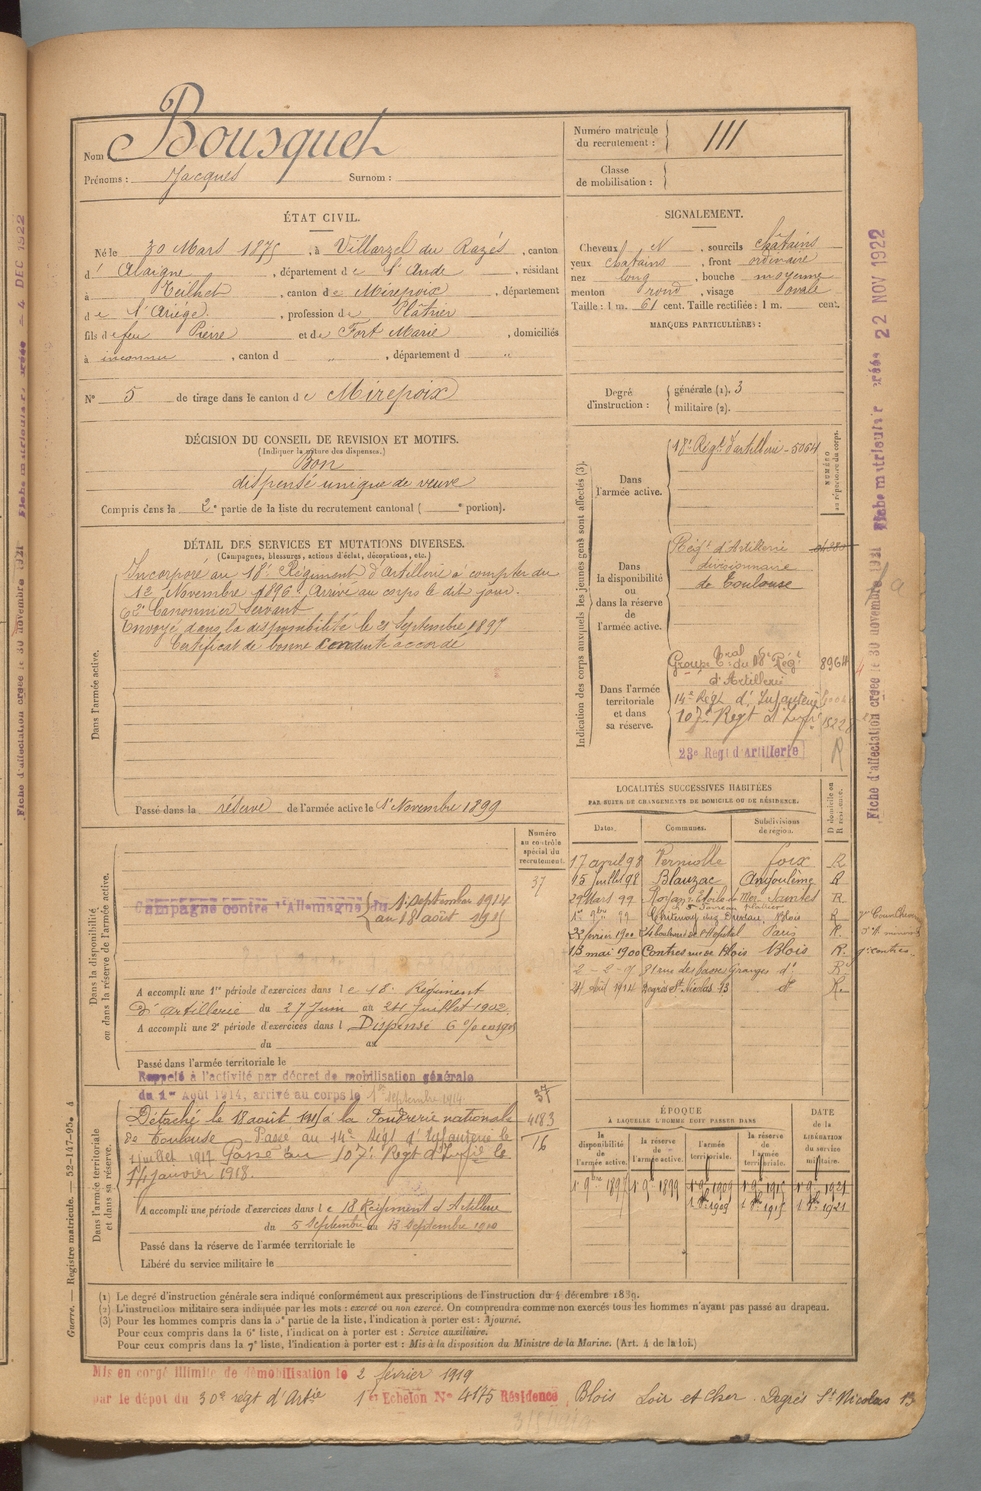 Nom Bousquet
Prénoms : Jacques Surnom :
Numéro matricule du recrutement : 111
Classe de mobilisation :
ÉTAT CIVIL.
Né le 30 Mars 1875, à Villarzel du Razés, canton
d' Alaigne, département de l'Aude, résidant
à Teilhet, canton de Mirepoix, département
de l'Ariége, profession de Plâtrier
fils de feu Pierre et de Fort Marie, domiciliés
à inconnu, canton d " , département d "
N° 5 de tirage dans le canton de Mirepoix
SIGNALEMENT.
Cheveux N, sourcils châtains
yeux chatains, front ordinaire
nez long, bouche moyenne
menton rond, visage ovale
Taille : 1 m. 61 cent. Taille rectifiée : 1 m. cent.
MARQUES PARTICULIÈRES :
Degré d'instruction : générale (1). 3
militaire (2).
DÉCISION DU CONSEIL DE REVISION ET MOTIFS.
(Indiquer la nature des dispenses.)
Bon
dispensé unique de veuve
Compris dans la 2e partie de la liste du recrutement cantonal ( e portion).
DÉTAIL DES SERVICES ET MUTATIONS DIVERSES.
(Campagnes, blessures, actions d'éclat, décorations, etc.)
Dans l'armée active.
Incorporé au 18e Régiment d'Artillerie à compter du
12 Novembre 1896, Arrivé au corps le dit jour.
et 2e Canonnier Servant
Envoyé dans la disponibilité le 21 Septembre 1897
Certificat de bonne conduite accordé
Passé dans la réserve de l'armée active le 1er Novembre 1899
Indication des corps auxquels les jeunes gens sont affectés (3).
NUMÉRO au répertoire du corps.
Dans l'armée active.
18e Régt d'artillerie - 5064
Dans la disponibilité ou dans la réserve de l'armée active.
Régt d'Artillerie
divisionnaire
de Toulouse
Dans l'armée territoriale et dans sa réserve.
Groupe Tral du 18e Régt 8964
d'Artillerie
14e Régt d'Infanterie
107e Regt d'Infie
23e Regt d'Artillerie R
Dans la disponibilité ou dans la réserve de l'armée active.
Numéro au contrôle spécial du recrutement.
37
Campagne contre l'Allemagne du 1er septembre 1914
au 18 août 1915
A accompli une 1re période d'exercices dans le 18e Régiment
d'Artillerie du 27 Juin au 24 Juillet 1902
A accompli une 2e période d'exercices dans l Dispensé
du au
Passé dans l'armée territoriale le
Rappelé à l'activité par décret de mobilisation générale
du 1er Août 1914, arrivé au corps le 1er septembre 1914.
Dans l'armée territoriale et dans sa réserve.
37
4183
16
Détaché le 18 août 1915 à la Fonderie nationale
de Toulouse Passé au 14e Régt d'Infanterie le
1 juillet 1917 Passé au 107e Regt d'Infie le
14 janvier 1918.
A accompli une période d'exercices dans le 18 Régiment d'Artillerie
du 5 Septembre au 13 Septembre 1910
Passé dans la réserve de l'armée territoriale le
Libéré du service militaire le
LOCALITÉS SUCCESSIVES HABITÉES
PAR SUITE DE CHANGEMENTS DE DOMICILE OU DE RÉSIDENCE.
Dates. Communes. Subdivisions de région. D domicile ou R résidence.
17 avril 98 Verniolle Foix R
15 Juillet 98 Blauzac Angoulème R
29 Mars 99 Royan Saintes R
1er 9bre 99 Chitenay chez Blois R
22 février 1900 boulevard de l'Hopital Paris R.
13 mai 1900 Contres rue de Blois Blois R.
2-2-7 81 rue des basses Granges d° R
21 Août 1912 Degrés St Nicolas 13 d° R
ÉPOQUE
À LAQUELLE L'HOMME DOIT PASSER DANS
la disponibilité de l'armée active. la réserve de l'armée active. l'armée territoriale. la réserve de l'armée territoriale. DATE de la LIBÉRATION du service militaire.
1er 9bre 1897 1er 9e 1899 1er 9e 1909 1er 9e 1915 1er 9e 1921
1 8bre 1909 1 8bre 1915 1 8bre 1921
(1) Le degré d'instruction générale sera indiqué conformément aux prescriptions de l'instruction du 4 décembre 1889.
(2) L'instruction militaire sera indiquée par les mots : exercé ou non exercé. On comprendra comme non exercés tous les hommes n'ayant pas passé au drapeau.
(3) Pour les hommes compris dans la 5e partie de la liste, l'indication à porter est : Ajourné.
Pour ceux compris dans la 6e liste, l'indication à porter est : Service auxiliaire.
Pour ceux compris dans la 7e liste, l'indication à porter est : Mis à la disposition du Ministre de la Marine. (Art. 4 de la loi.)
Mis en congé illimité de démobilisation le 2 février 1919
par le dépot du 30e régt d'Artie 1er Echelon N° 4175 Résidence Blois Loir et Cher Degrés St Nicolas 13
Guerre. — Registre matricule. — 52-147-95.
Fiche d'affectation créée le 30 novembre 1921 Fiche matriculaire créée 22 NOV 1922
Fiche d'affectation créée le 30 novembre 1921 Fiche matriculaire créée - 4 DEC 1922